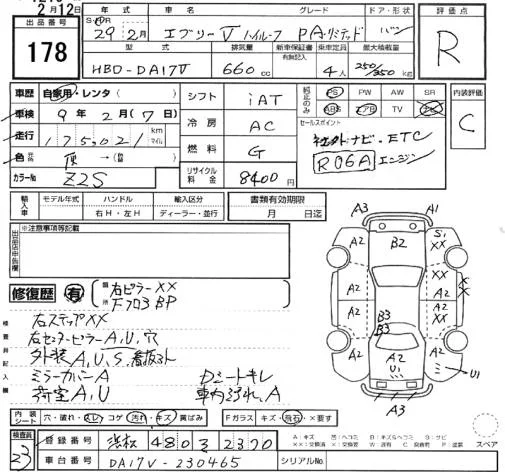 2月12日
出品番号
178
年式 車名 グレード ドア・形状
29年2月 エブリーV ハイルーフ PAリミテッド バン
型式 排気量 新車保証書 乗車定員 最大積載量
有無記入
HBD-DA17V 660cc 4人 250/350kg
評価点
R
車歴 自家用・レンタ( )
車検 9年2月(7日)
走行 175,021 km マイル
色 灰 →(
カラーNo Z2S
シフト iAT
冷房 AC
燃料 G
リサイクル料金 8400円
純正品のみ
PS PW AW SR
ABS エアB TV
セールスポイント
社外ナビ・ETC
R06Aエンジン
内装評価
C
輸入車
モデル年式 ハンドル 輸入区分
右H・左H ディーラー・並行
書類有効期限
月 日迄
出品店申告欄
※注意事項等記載
修復歴 有
箇所
右ピラーXX
Fフロア BP
検査員記入欄
右ステップXX
右センターピラーA,U,穴
外装A,U,S,看板跡
ミラーカバーA Dシートキレ
荷室A,U 車内汚れ,A
A3 A1
A2 B2 S1 XX
A2 A2 XX
B3 B3
A2 A2 A2
U1 U1
A3
内装シート
穴・破れ・スレ・コゲ・汚れ・キズ・黄ばみ
Fガラス キズ・飛石・×要す
検査員
23
登録番号 浜松 480 2370
車台番号 DA17V-230465
シリアルNo.
スペア